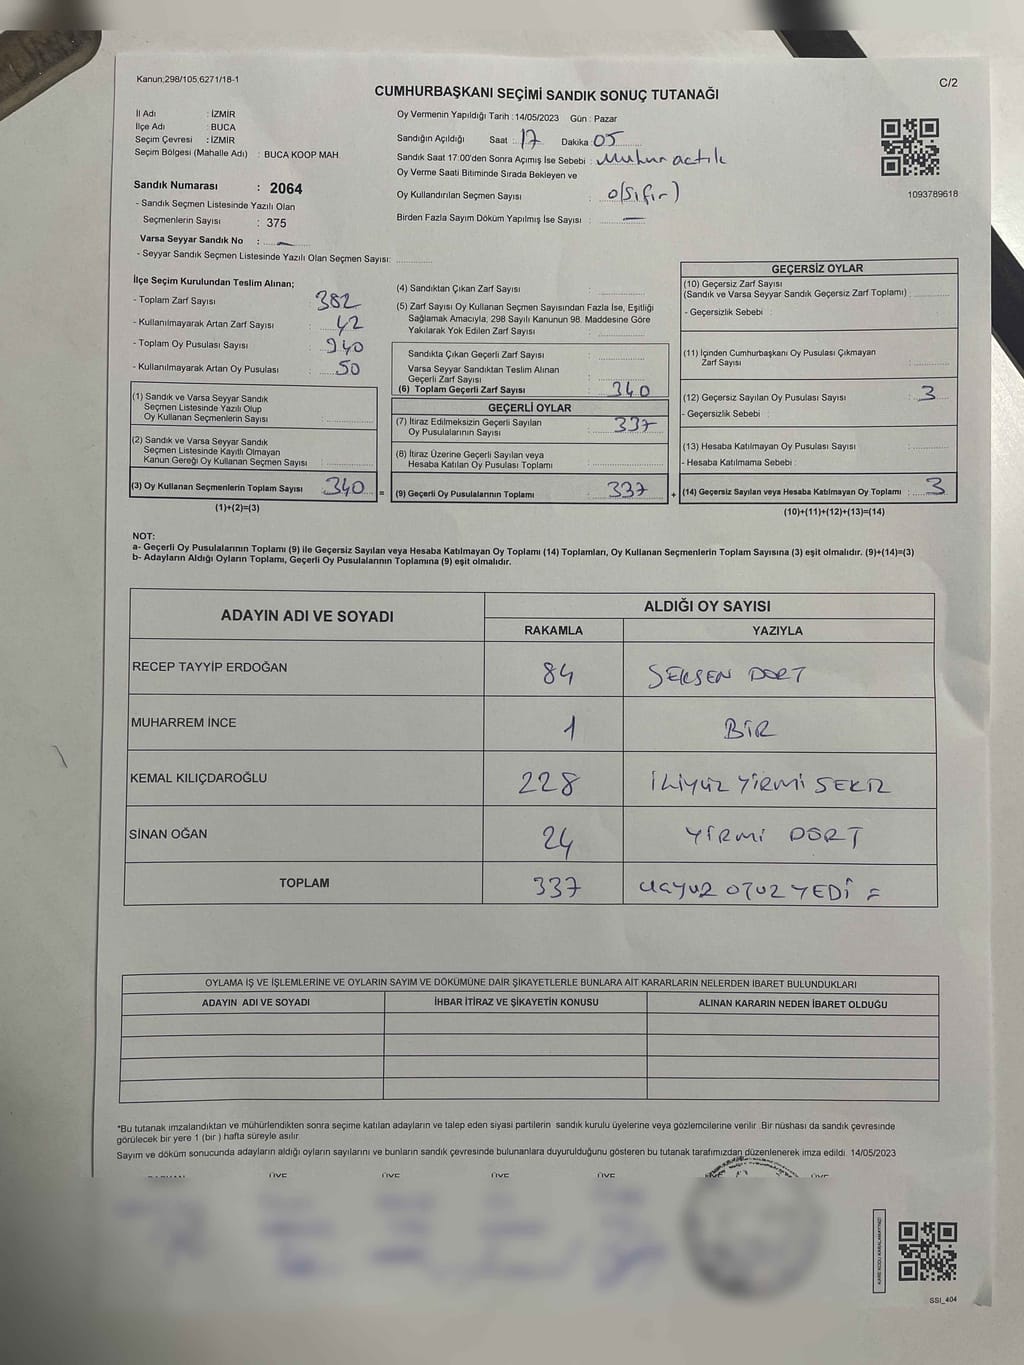 Kanun;298/105,6271/18-1
C/2
CUMHURBAŞKANI SEÇİMİ SANDIK SONUÇ TUTANAĞI
İl Adı : İZMİR
İlçe Adı : BUCA
Seçim Çevresi : İZMİR
Seçim Bölgesi (Mahalle Adı) : BUCA KOOP MAH.
Sandık Numarası : 2064
- Sandık Seçmen Listesinde Yazılı Olan
Seçmenlerin Sayısı : 375
Varsa Seyyar Sandık No : —
- Seyyar Sandık Seçmen Listesinde Yazılı Olan Seçmen Sayısı:
Oy Vermenin Yapıldığı Tarih : 14/05/2023 Gün : Pazar
Sandığın Açıldığı Saat : 17 Dakika : 05
Sandık Saat 17:00'den Sonra Açımış İse Sebebi : Muhur actık
Oy Verme Saati Bitiminde Sırada Bekleyen ve
Oy Kullandırılan Seçmen Sayısı : 0(sıfır)
Birden Fazla Sayım Döküm Yapılmış İse Sayısı : —
1093789618
İlçe Seçim Kurulundan Teslim Alınan;
- Toplam Zarf Sayısı 382
- Kullanılmayarak Artan Zarf Sayısı : 42
- Toplam Oy Pusulası Sayısı : 940
- Kullanılmayarak Artan Oy Pusulası : 50
(1) Sandık ve Varsa Seyyar Sandık
Seçmen Listesinde Yazılı Olup
Oy Kullanan Seçmenlerin Sayısı :
(2) Sandık ve Varsa Seyyar Sandık
Seçmen Listesinde Kayıtlı Olmayan
Kanun Gereği Oy Kullanan Seçmen Sayısı :
(3) Oy Kullanan Seçmenlerin Toplam Sayısı 340 =
(1)+(2)=(3)
(4) Sandıktan Çıkan Zarf Sayısı :
(5) Zarf Sayısı Oy Kullanan Seçmen Sayısından Fazla İse, Eşitliği
Sağlamak Amacıyla, 298 Sayılı Kanunun 98. Maddesine Göre
Yakılarak Yok Edilen Zarf Sayısı :
Sandıkta Çıkan Geçerli Zarf Sayısı :
Varsa Seyyar Sandıktan Teslim Alınan
Geçerli Zarf Sayısı :
(6) Toplam Geçerli Zarf Sayısı : 340
GEÇERLİ OYLAR
(7) İtiraz Edilmeksizin Geçerli Sayılan
Oy Pusulalarının Sayısı : 337
(8) İtiraz Üzerine Geçerli Sayılan veya
Hesaba Katılan Oy Pusulası Toplamı :
(9) Geçerli Oy Pusulalarının Toplamı : 337 +
GEÇERSİZ OYLAR
(10) Geçersiz Zarf Sayısı
(Sandık ve Varsa Seyyar Sandık Geçersiz Zarf Toplamı) :
- Geçersizlik Sebebi :
(11) İçinden Cumhurbaşkanı Oy Pusulası Çıkmayan
Zarf Sayısı :
(12) Geçersiz Sayılan Oy Pusulası Sayısı : 3
- Geçersizlik Sebebi :
(13) Hesaba Katılmayan Oy Pusulası Sayısı :
- Hesaba Katılmama Sebebi :
(14) Geçersiz Sayılan veya Hesaba Katılmayan Oy Toplamı : 3
(10)+(11)+(12)+(13)=(14)
NOT:
a- Geçerli Oy Pusulalarının Toplamı (9) ile Geçersiz Sayılan veya Hesaba Katılmayan Oy Toplamı (14) Toplamları, Oy Kullanan Seçmenlerin Toplam Sayısına (3) eşit olmalıdır. (9)+(14)=(3)
b- Adayların Aldığı Oyların Toplamı, Geçerli Oy Pusulalarının Toplamına (9) eşit olmalıdır.
ADAYIN ADI VE SOYADI
ALDIĞI OY SAYISI
RAKAMLA YAZIYLA
RECEP TAYYİP ERDOĞAN 84 SEKSEN DÖRT
MUHARREM İNCE 1 BİR
KEMAL KILIÇDAROĞLU 228 İKİYÜZ YİRMİ SEKİZ
SİNAN OĞAN 24 YİRMİ DÖRT
TOPLAM 337 ÜÇYÜZ OTUZ YEDİ =
OYLAMA İŞ VE İŞLEMLERİNE VE OYLARIN SAYIM VE DÖKÜMÜNE DAİR ŞİKAYETLERLE BUNLARA AİT KARARLARIN NELERDEN İBARET BULUNDUKLARI
ADAYIN ADI VE SOYADI İHBAR İTİRAZ VE ŞİKAYETİN KONUSU ALINAN KARARIN NEDEN İBARET OLDUĞU
*Bu tutanak imzalandıktan ve mühürlendikten sonra seçime katılan adayların ve talep eden siyasi partilerin sandık kurulu üyelerine veya gözlemcilerine verilir .Bir nüshası da sandık çevresinde
görülecek bir yere 1 (bir ) hafta süreyle asılır.
Sayım ve döküm sonucunda adayların aldığı oyların sayılarını ve bunların sandık çevresinde bulunanlara duyurulduğunu gösteren bu tutanak tarafımızdan düzenlenerek imza edildi. 14/05/2023
ÜYE ÜYE ÜYE ÜYE ÜYE
KARE KODU KARALAMAYINIZ!
SSI_404